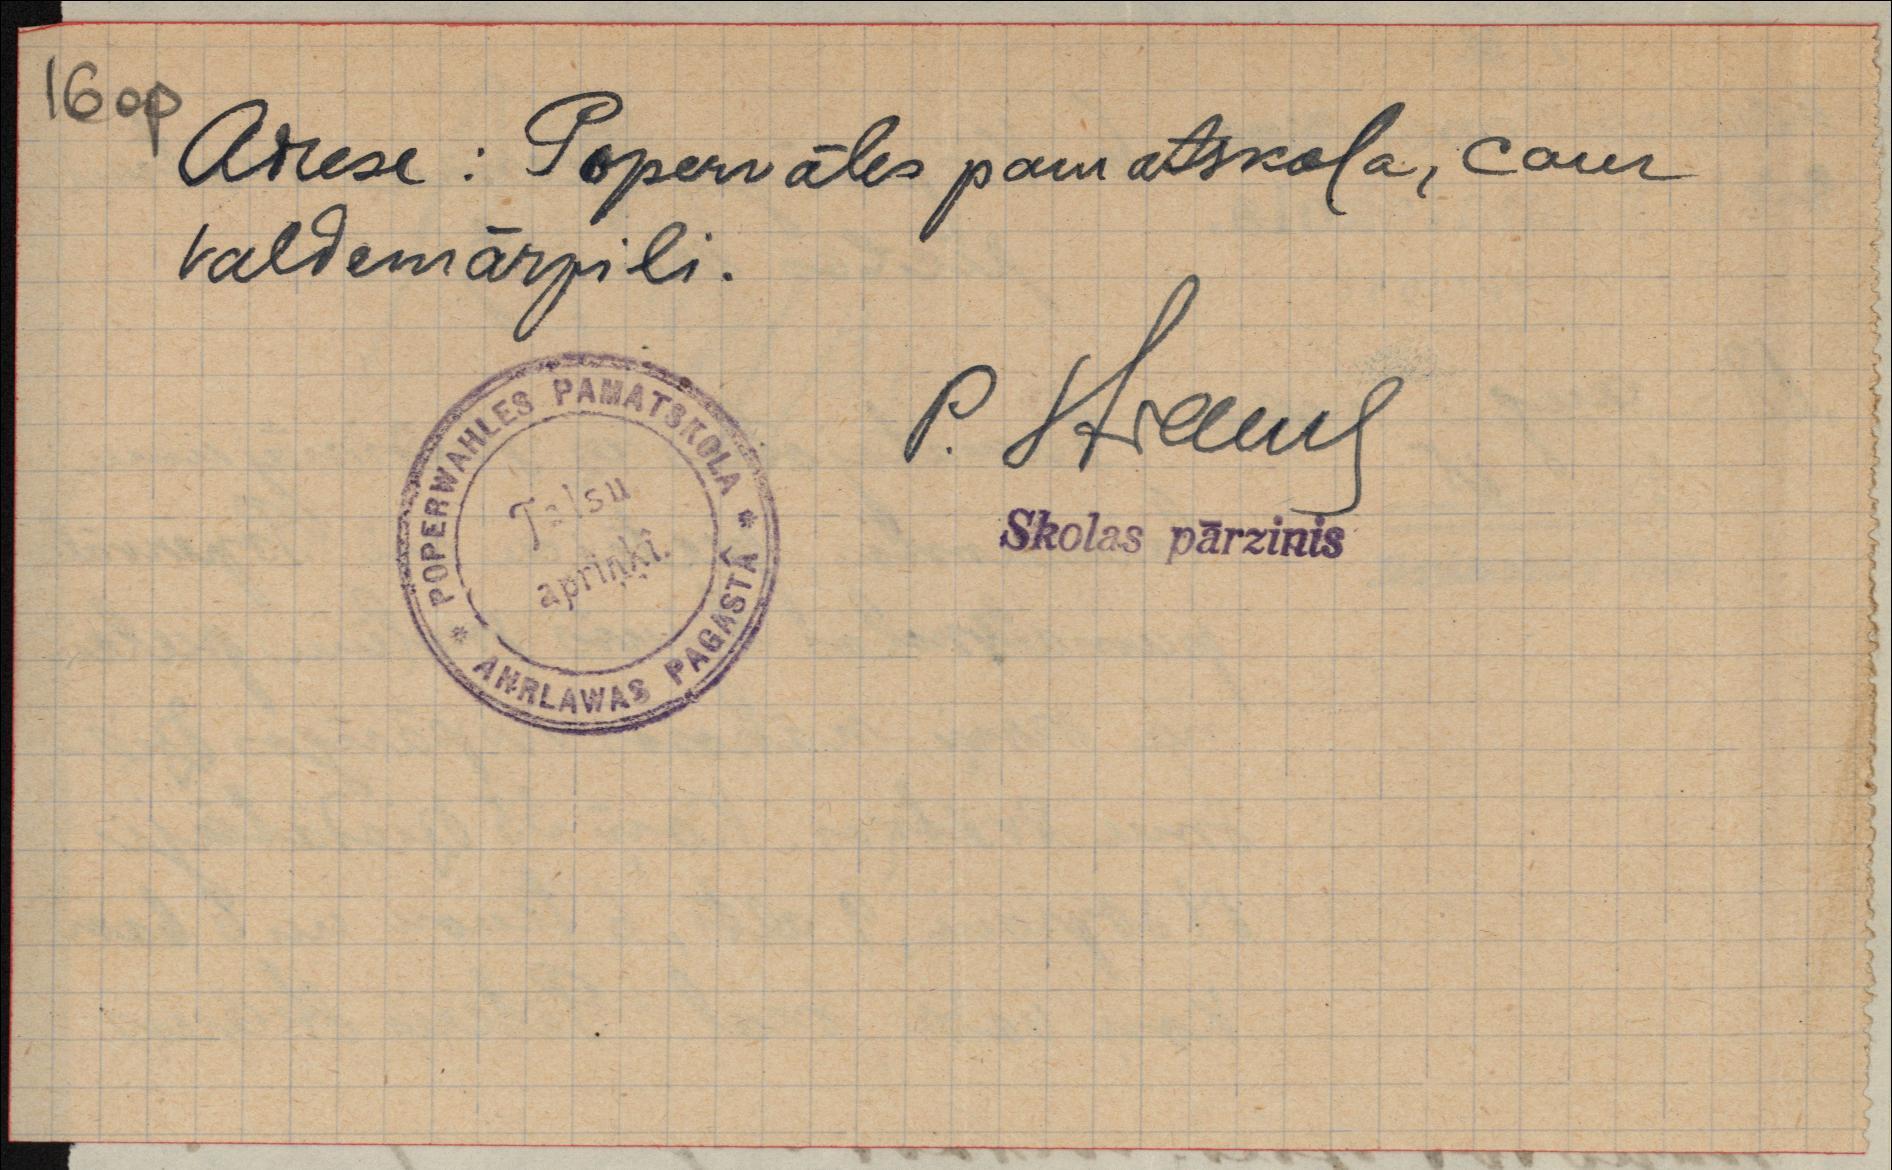 16 op
Adrese: Popervāles pamatskola, caur
Valdemārpili.
P. Strauß
POPERWAHLES PAMATSKOLA
Talsu
apriņķī.
AHRLAWAS PAGASTĀ
Skolas pārzinis